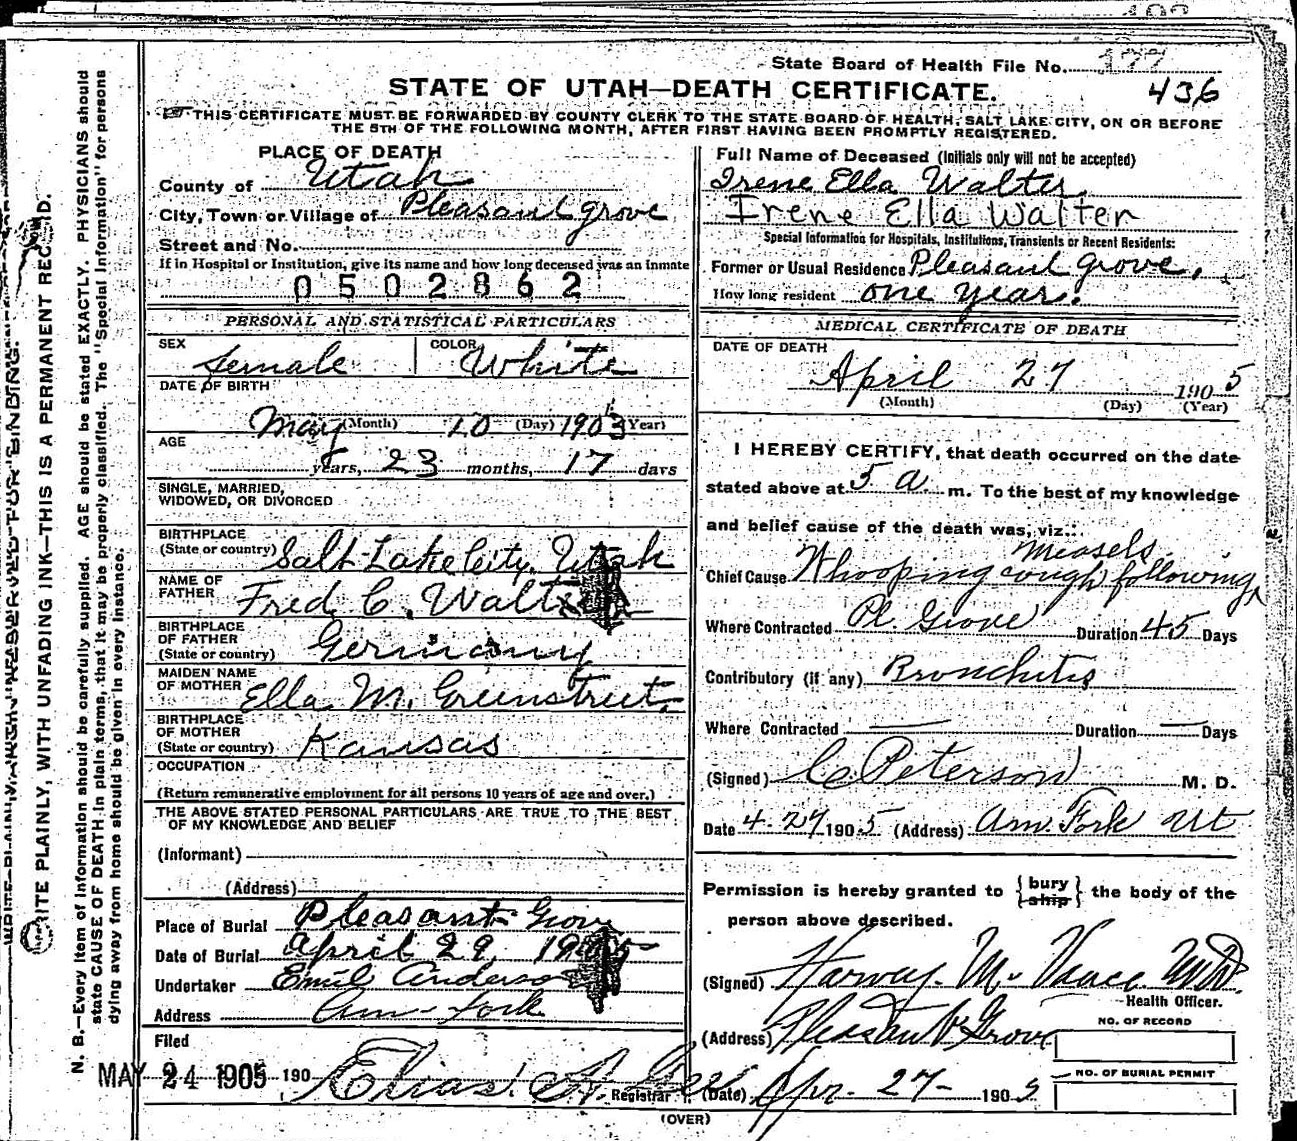 State Board of Health File No. 177
STATE OF UTAH—DEATH CERTIFICATE.
436
THIS CERTIFICATE MUST BE FORWARDED BY COUNTY CLERK TO THE STATE BOARD OF HEALTH, SALT LAKE CITY, ON OR BEFORE
THE 5TH OF THE FOLLOWING MONTH, AFTER FIRST HAVING BEEN PROMPTLY REGISTERED.
PLACE OF DEATH
County of Utah
City, Town or Village of Pleasant grove
Street and No.
If in Hospital or Institution, give its name and how long deceased was an inmate
0502862
PERSONAL AND STATISTICAL PARTICULARS
SEX female COLOR White
DATE OF BIRTH
May (Month) 10 (Day) 1903 (Year)
AGE
years, 23 months, 17 days
SINGLE, MARRIED,
WIDOWED, OR DIVORCED
BIRTHPLACE
(State or country) Salt Lake City, Utah
NAME OF
FATHER Fred C. Walter
BIRTHPLACE
OF FATHER
(State or country) Germany
MAIDEN NAME
OF MOTHER Ella M. Greenstreet
BIRTHPLACE
OF MOTHER
(State or country) Kansas
OCCUPATION
(Return remunerative employment for all persons 10 years of age and over.)
THE ABOVE STATED PERSONAL PARTICULARS ARE TRUE TO THE BEST
OF MY KNOWLEDGE AND BELIEF
(Informant)
(Address)
Place of Burial Pleasant Grove
Date of Burial April 29, 1905
Undertaker Emil Anderson
Address Am Fork
Filed
MAY 24 1905 190 Elias A.
Registrar
(OVER)
Full Name of Deceased (Initials only will not be accepted)
Irene Ella Walter
Irene Ella Walter
Special Information for Hospitals, Institutions, Transients or Recent Residents:
Former or Usual Residence Pleasant grove,
How long resident one year.
MEDICAL CERTIFICATE OF DEATH
DATE OF DEATH
April 27 1905
(Month) (Day) (Year)
I HEREBY CERTIFY, that death occurred on the date
stated above at 5 a m. To the best of my knowledge
and belief cause of the death was, viz.:
measels
Chief Cause Whooping cough following
Where Contracted Pl. Grove Duration 45 Days
Contributory (if any) Bronchites
Where Contracted — Duration — Days
(Signed) C Peterson M. D.
Date 4-27 1905 (Address) Am. Fork Ut
Permission is hereby granted to {bury ship} the body of the
person above described.
(Signed) Harvey M. Vance MD.
Health Officer.
(Address) Pleasant Grove
NO. OF RECORD
NO. OF BURIAL PERMIT
(Date) Apr. 27- 1905
WRITE PLAINLY, WITH UNFADING INK—THIS IS A PERMANENT RECORD.
N. B.—Every item of information should be carefully supplied. AGE should be stated EXACTLY. PHYSICIANS should
state CAUSE OF DEATH in plain terms, that it may be properly classified. The "Special Information" for persons
dying away from home should be given in every instance.